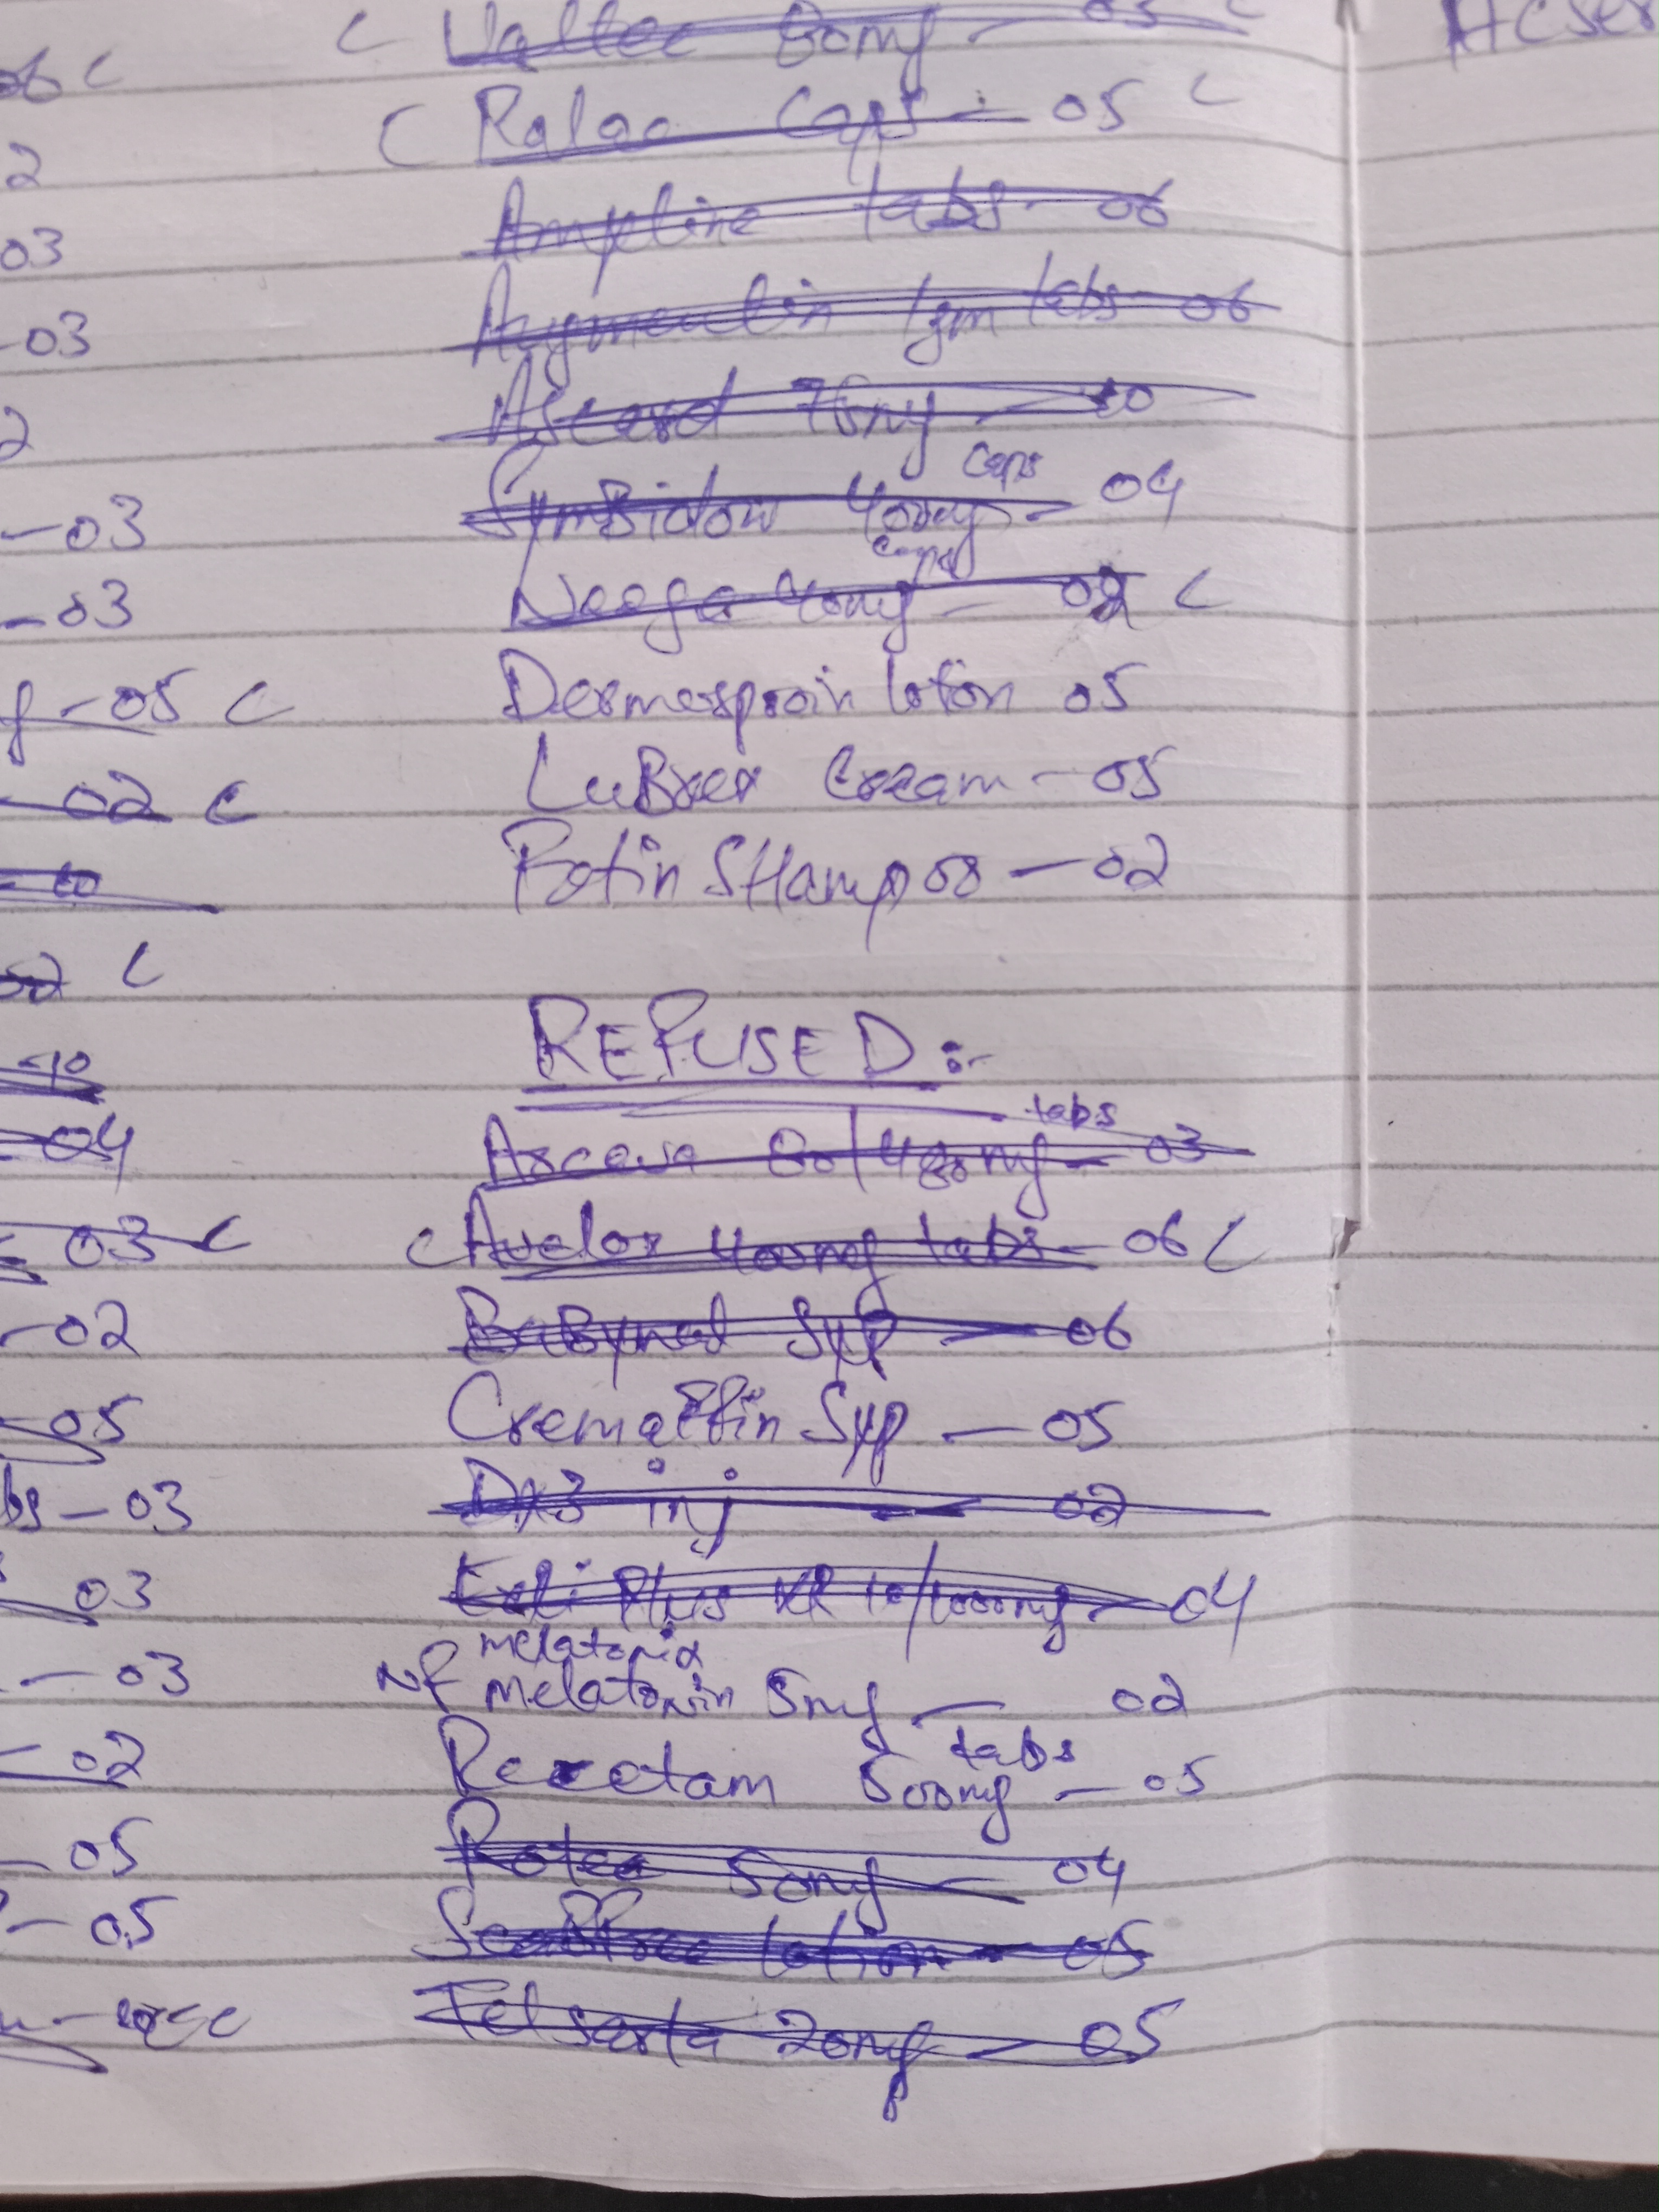 06 C
2
03
-03
2
-03
-03
-05 C
-02 C
10
02 C
-10
04
03 C
-02
-05
bs-03
03
-03
-02
-05
-05
C 80mg - 05 C
C Ralaa Caps - 05 C
Ampeline tabs - 06
Augmentin 1gm tabs 06
Ascard 75mg - 10
40mg caps - 04
40mg caps - 02 C
Dermosproin loton 05
LuBrex Cream - 05
SHampoo - 02
REFUSED :-
80/480mg tabs - 03
C Avelox 400mg tabs - 06 C
BaBynol Syp - 06
Cremaffin Syp - 05
D13 inj - 02
Plus XR 10/1000mg - 04
melatonix
NF melatonin 5mg - 02
Rexetam 500mg tabs - 05
Rotec 50mg - 04
Scabfree lotion - 05
Telsarta 20mg - 05